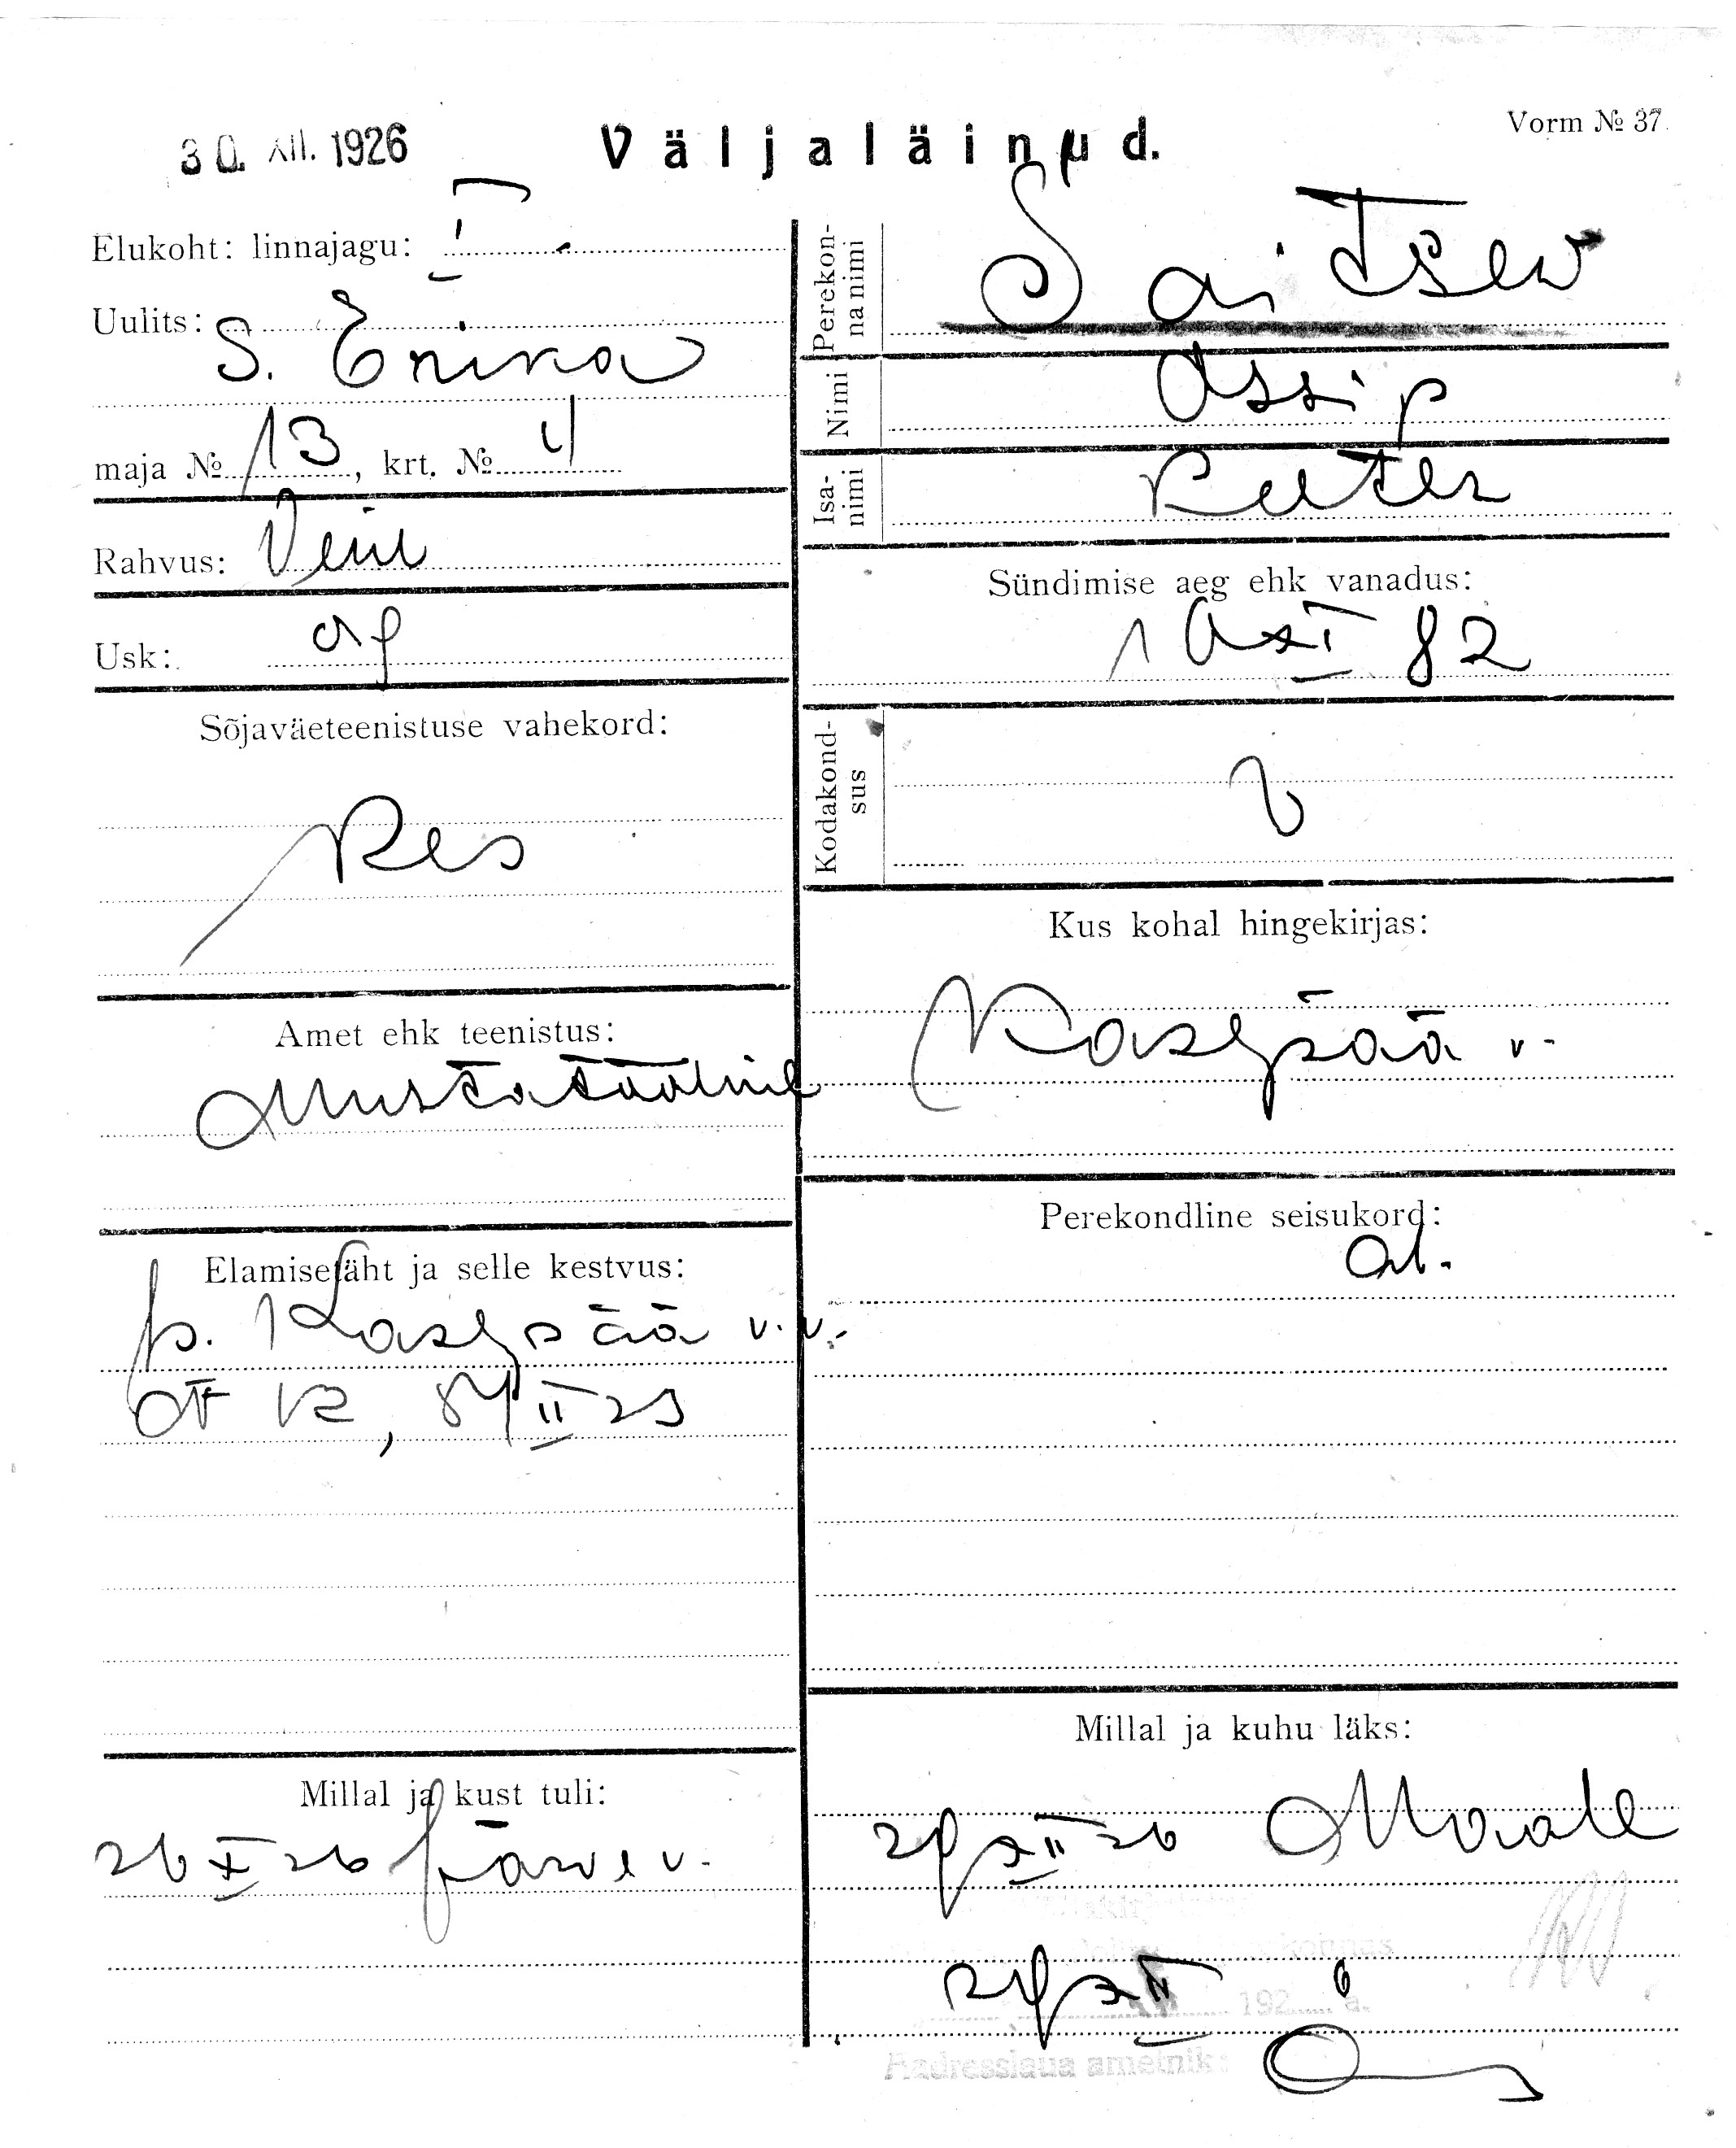 30. XII. 1926
Väljaläinud.
Vorm № 37.
Elukoht: linnajagu: I
Uulits: S. Erika
maja № 13, krt. № 4
Rahvus: Vene
Usk: ap
Sõjaväeteenistuse vahekord:
Res
Amet ehk teenistus:
Mustatööline
Elamisetäht ja selle kestvus:
p. Kasepää v. v.
II 23
Millal ja kust tuli:
26 X 26 Järve v.
Perekonnanimi
Saitsew
Nimi
Ossip
Isanimi
Peeter
Sündimise aeg ehk vanadus:
10 XI 82
Kodakondsus
Kus kohal hingekirjas:
Kasepää v.
Perekondline seisukord:
ab.
Millal ja kuhu läks:
29 XII 26 Maale
29 XII 6
192 a.
Aadresslaua ametnik: